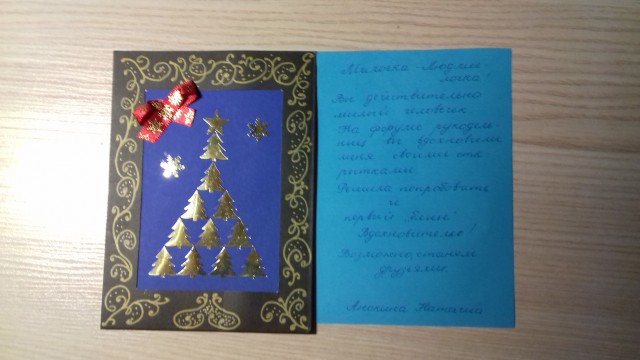 Милочка - Людми-
лочка!
Вы действительно
милый человечек.
На форуме рукодел
ниц вы вдохновили
меня своими отк
рытками.
Решила попробовать
и
первый
Вдохновителю!
Возможно, станем
друзьями
Наталия